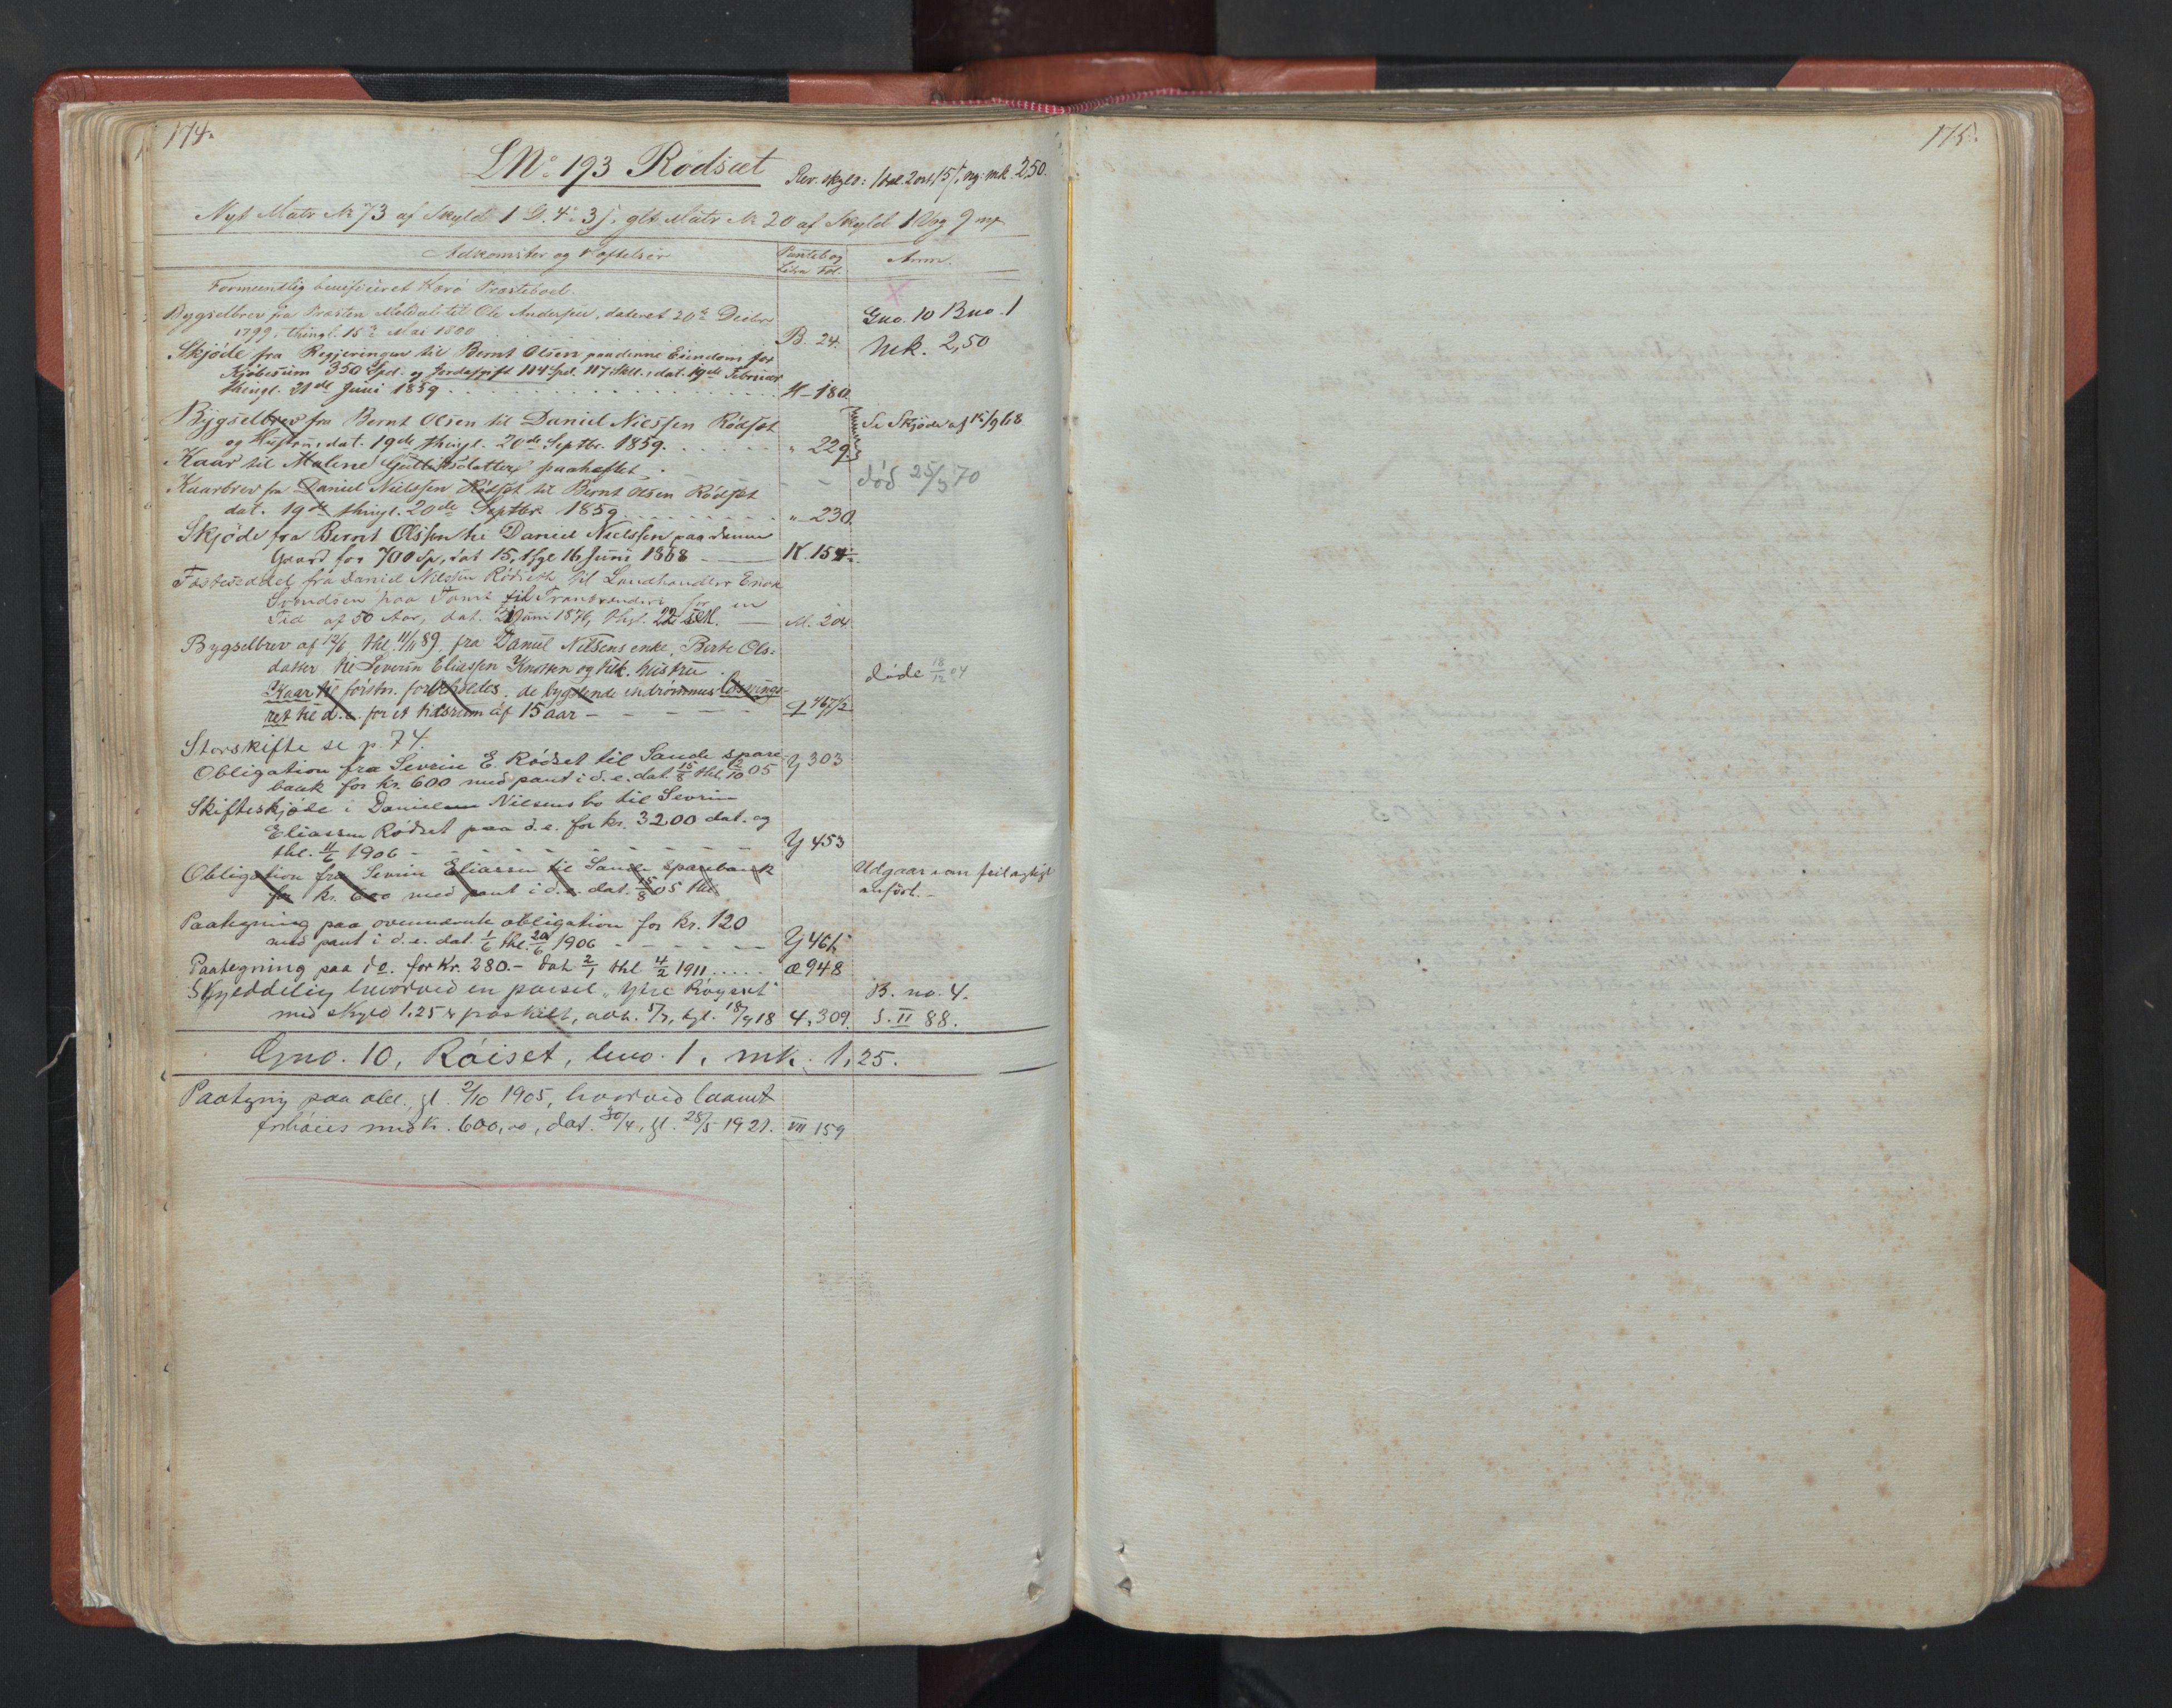 174.
LNo. 193 Rødsæt Rev. skyld: 1 dal. 2 ort 15 s, ny: mk. 2,50.
Nyt Matr No 73 af Skyld 1 D. 4. 3 s, glt Matr No 20 af Skyld 1 Vog 9 mf
Adkomster og Hæftelser Pantebog Anm.
Litra Fol.
Formeentlig benificeret Herø Præstebord.
Bygselbrev fra Præsten Meldal til Ole Andersen, dateret 20de Decbr
1799, thingl. 15de Mai 1800 B. 24. Gno. 10 Bno. 1
Skjøde fra Regjeringen til Bernt Olsen paa denne Eiendom for Mk. 2,50
Kjøbesum 350 Spd. og Jordafgift 114 Spd. 117 Skill., dat. 19de Februar
thingl. 21de Juni 1859 H-180
Bygselbrev fra Bernt Olsen til Daniel Nielsen Rødset Se Skjøde af 15/9 68
og Hustru, dat. 19de thingl. 20de Septbr. 1859. " 229.
Kaar til Malene Guttormsdatter paaheftet. død 25/3 70
Kaarbrev fra Daniel Nielssen Rødset til Bernt Olsen Rødset
dat. 19de thingl. 20de Septbr 1859 "-230.
Skjøde fra Bernt Olssen til Daniel Nielssen paa denne
Gaard for 700 Sp, dat 15, thgl 16 Juni 1868 K. 154
Fæsteseddel fra Daniel Nilssen Rødseth til Landhandler Enok
Svendsen paa Tomt til Tranbrænderi for en
Tid af 50 Aar, dat. 21 Juni 1876, thgl. 22 M. 204
Bygselbrev af 12/6 thl. 11/11 89 fra Daniel Nilsens enke, Berte Ols:
datter til Severin Eliassen Knotten og tilk. hustru. døde 18/12 04
Kaar til førstn. forbeholdes. de bygslende indrømmes løsnings-
ret til d. e. for et tidsrum af 15 aar - Q 467/2
Storskifte se p. 74.
Obligation fra Sevrin E. Rødset til Sande spare-
bank for kr. 600 med pant i d. e. dat. 15/8 thl. 2/10 05 Y 303
Skifteskjøde i Daniel Nilsens bo til Sevrin
Eliassen Rødset paa d. e. for kr. 3200 dat. og
thl. 11/6 1906 - Y 453
Obligation fra Sevrin Eliassen til Sande sparebank Udgaar som feilagtigt
for kr. 600 med pant i d. e. dat. 15/8 05 thl. anført.-
Paategning paa ovennævnte obligation for kr. 120
med pant i d. e. dat. 1/6 thl. 20/6 1906 - Y 461
Paategning paa do. for Kr. 280.- dat. 2/1 thl. 4/2 1911 Æ 948
Skylddeling hvorved en parsel "Ytre Røyset" B. no. 4.
med skyld 1,25 er fraskilt, avh. 5/7, tgl. 18/9 18 4, 309. S. II 88.
Gno. 10, Røiset, bno. 1, mk. 1,25.
Paategn. paa obl. gl. 2/10 1905, hvorved laanet
forhøies med kr. 600,00, dat. 30/4, gl. 28/5 1921. VII 159
175.